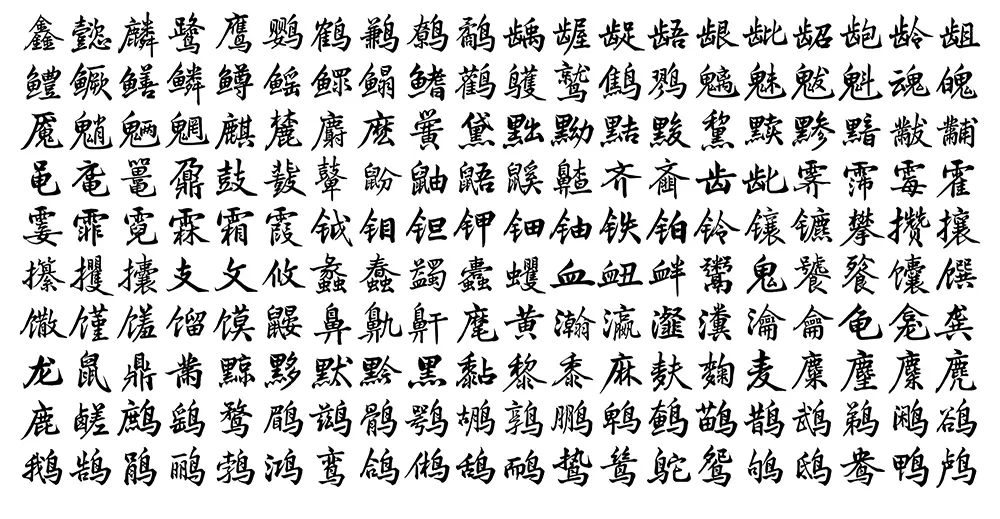 鑫懿麟鹭鹰鹦鹤鹣鹩鹬龋龌龊龉龈龇龆龅龄龃
鳢鳜鳝鳞鳟鳐鳏鳎鳍鹳鹱鹫鹪鹨魑魅魃魁魂魄
魇魈魉魍麒麓麝麽黉黛黜黝黠黢黧黩黪黯黻黼
黾鼋鼍鼐鼓鼗鼙鼢鼬鼯鼷齄齐齑齿龀霁霈霉霍
霎霏霓霖霜霞钺钼钽钾钿铀铁铂铃镶镳攀攒攘
攥攫攮支文攸蠡蠢蠲蠹蠼血衄衅鬻鬼饕餮馕馔
馓馑馐馏馍鼹鼻鼽鼾麾黄瀚瀛瀣瀵瀹龠龟龛龚
龙鼠鼎黹黥黟默黔黑黏黎黍麻麸麴麦麋麈麇麂
鹿鹾鹧鹞鹜鹛鹚鹘鹗鹕鹑鹏鹎鹌鹋鹊鹉鹈鹇鹆
鹅鹄鹃鹂鹁鸿鸾鸽鸺鸹鸸鸷鸶鸵鸳鸲鸱鸯鸭鸬